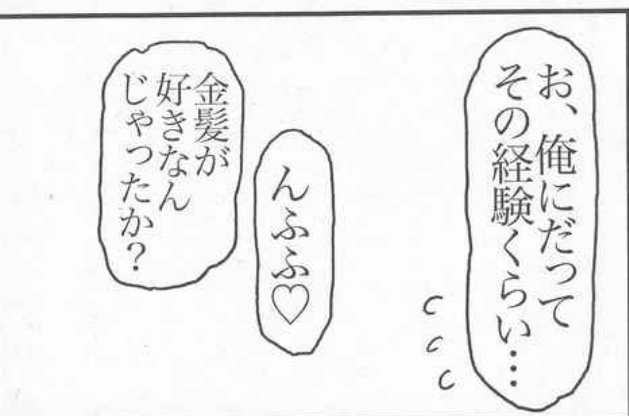 お、俺にだって
その経験くらい…
んふふ♡
金髪が
好きなん
じゃったか?